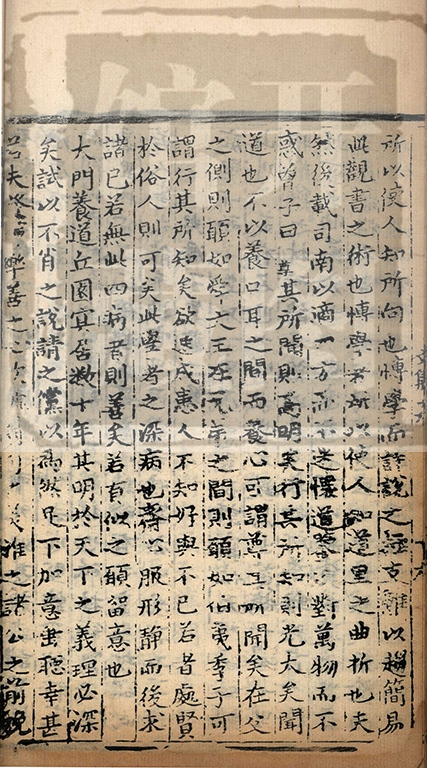 所以復人知所向也博學而詳說之極支離以趨簡易
此觀書之術也博學者所以使人知道里之曲折也夫
然後載司南以適一方而不迷懷道對萬物而不
惑曾子曰尊其所聞則高明矣行其所知則光大矣聞
道也不以養口耳之間而養心可謂尊其所聞矣在父
之側則願如舜文王在兄弟之間則願如伯夷季子可
謂行其所知矣欲速成患人不知好與不已若者處賢
於俗人則可矣此學者之深病也心服形靜而後求
諸己若無此四病者則善矣若有似之願留意也
大門養道丘園寘居數十年其明於天下之義理必深
矣試以不肖之說請之儻以為然足下加意書聽幸甚
夫樂善之心 推之諸公之前